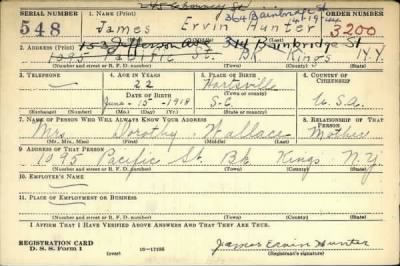 SERIAL NUMBER 1. NAME (Print) 364 Bainbridge St ORDER NUMBER
548 James Ervin Hunter 3200
(First) (Middle) (Last)
2. ADDRESS (Print) 153 Jefferson Ave 314 Bainbridge St
1095 Pacific St. Bk Kings N.Y.
(Number and street or R. F. D. number) (Town) (County) (State)
3. TELEPHONE 4. AGE IN YEARS 5. PLACE OF BIRTH 6. COUNTRY OF CITIZENSHIP
22 Hartsville
DATE OF BIRTH
June - 15 - 1918 S.C. U.S.A.
(Exchange) (Number) (Mo.) (Day) (Yr.) (State or country)
7. NAME OF PERSON WHO WILL ALWAYS KNOW YOUR ADDRESS 8. RELATIONSHIP OF THAT PERSON
Mrs Dorothy Wallace Mother
(Mr., Mrs., Miss) (First) (Middle) (Last)
9. ADDRESS OF THAT PERSON
1095 Pacific St. Bk Kings N.Y.
(Number and street or R. F. D. number) (Town) (County) (State)
10. EMPLOYER'S NAME
11. PLACE OF EMPLOYMENT OR BUSINESS
(Number and street or R. F. D. number) (Town) (County) (State)
I AFFIRM THAT I HAVE VERIFIED ABOVE ANSWERS AND THAT THEY ARE TRUE.
REGISTRATION CARD
D. S. S. Form 1 (over) 16-17105 James Ervin Hunter
(Registrant's signature)